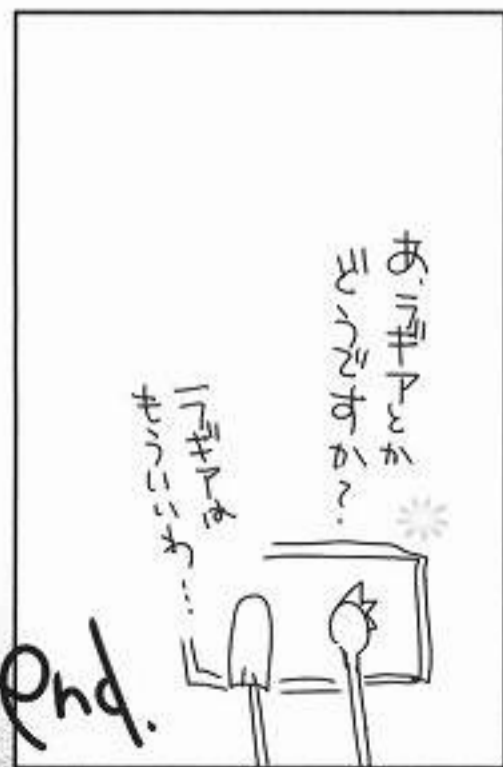 あ、ラギアとか
どうですか?
ラギアは
もういいわ…
end.